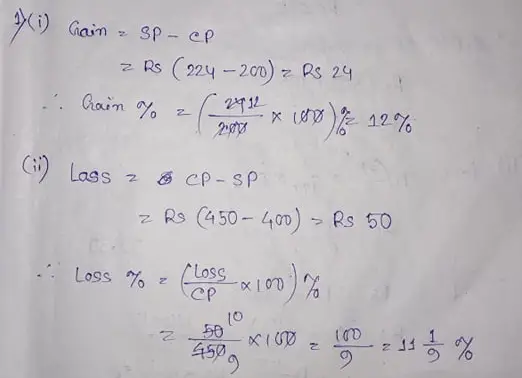 1)(i) Gain = SP - CP
= Rs (224 - 200) = Rs 24
∴ Gain % = (24 12/200 × 100)% = 12%
(ii) Lass = CP - SP
= Rs (450 - 400) = Rs 50
∴ Loss % = (Loss/CP × 100)%
= 50 10/450 9 × 100 = 100/9 = 11 1/9 %